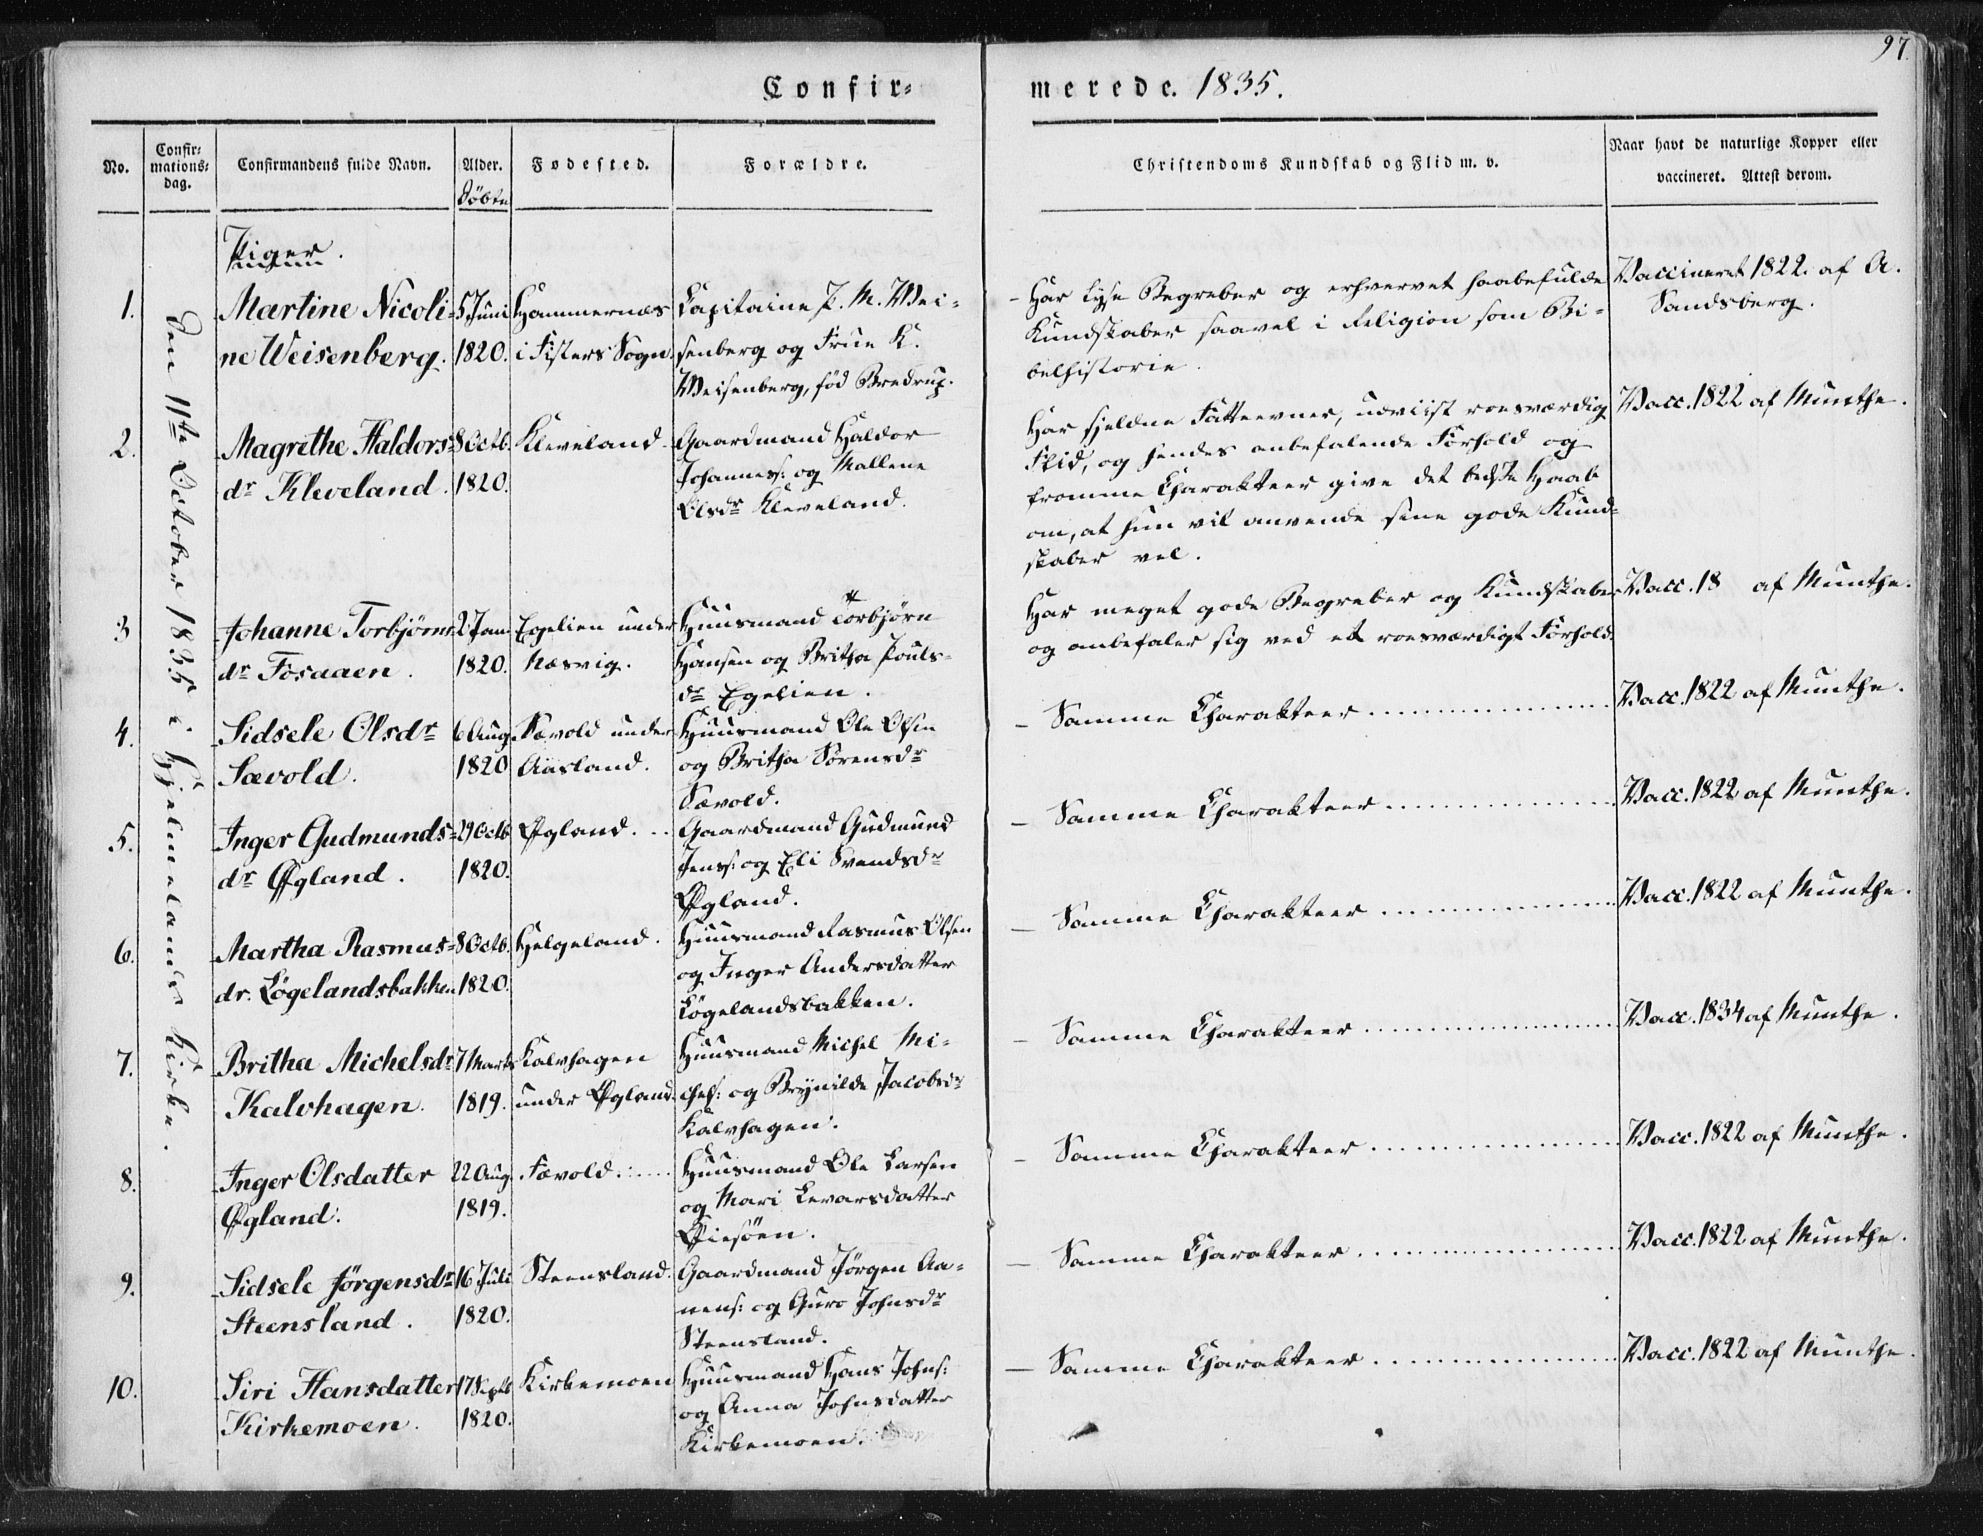 97.
Confir-
merede. 1835.
No.
Confir-
mations-
dag.
Confirmandens fulde Navn.
Alder.
Döbte
Fødested.
Forældre.
Christendoms Kundskab og Flid m. v.
Naar havt de naturlige Kopper eller
vaccineret. Attest derom.
Den 11te October 1835 i Hjelmelands Kirke.
Piger.
1.
Martine Nicoli-
ne Weisenberg.
5 Juni
1820.
Hammernæs
i Fisters Sogn
Capitaine P. M. Wei-
senberg og Frue K.
Weisenberg, fød Bredrup.
- Har lyse Begreber og erhvervet haabefulde
Kundskaber saavel i Religion som Bi-
belhistorie.
Vaccineret 1822. af A.
Sandsberg.
2.
Magrethe Haldors-
dr Kleveland.
8 Octb.
1820.
Kleveland
Gaardmand Haldor
Johannes: og Mallene
Olsdr Kleveland.
Har sjeldne Fatteevner, udviist roesværdig
Flid, og hendes anbefalende Forhold og
fromme Charakteer give det bedste Haab
om, at hun vil anvende sine gode Kund-
skaber vel.
Vacc. 1822 af Munthe.
3
Johanne Torbjörns
dr Fosaaen.
2 Jan.
1820.
Egelien under
Næsvig.
Huusmand Torbjørn
Hansen og Britha Pouls-
dr Egelien.
Har meget gode Begreber og Kundskaber
og anbefaler sig ved et roesværdigt Forhold.
Vacc. 18 af Munthe.
4.
Sidsele Olsdr
Sævold.
6 Aug.
1820
Sævold under
Aasland.
Huusmand Ole Olsen
og Britha Sörensdr
Sævold.
- Samme Charakteer
Vacc. 1822 af Munthe.
5.
Inger Gudmunds-
dr Øgland.
29 Octb
1820.
Øgland.
Gaardmand Gudmund
Jens: og Eli Svendsdr
Øgland.
- Samme Charakteer
Vacc. 1822 af Munthe.
6.
Martha Rasmus-
dr. Løgelandsbakken
8 Octb.
1820.
Helgeland.
Huusmand Rasmus Olsen
og Inger Andersdatter
Løgelandsbakken.
- Samme Charakteer
Vacc. 1822 af Munthe.
7.
Britha Michelsdr
Kalvhagen.
7 Marts
1819.
Kalvhagen
under Øgland.
Huusmand Michel Mi-
chels: og Brynilde Jacobsdr
Kalvhagen.
- Samme Charakteer
Vacc. 1834 af Munthe.
8.
Inger Olsdatter
Øgland.
22 Aug.
1819.
Sævold.
Huusmand Ole Larsen
og Mari Levarsdatter
- Samme Charakteer
Vacc. 1822 af Munthe.
9.
Sidsele Jørgensdr
Steensland.
16 Juli
1820.
Steensland.
Gaardmand Jörgen Aa-
nens: og Guro Johnsdr
Steensland.
- Samme Charakteer
Vacc. 1822 af Munthe.
10.
Siri Hansdatter
Kirkemoen.
17 Septb
1820.
Kirkemoen
Huusmand Hans Johns:
og Anna Johnsdatter
Kirkemoen.
- Samme Charakteer
Vacc. 1822 af Munthe.